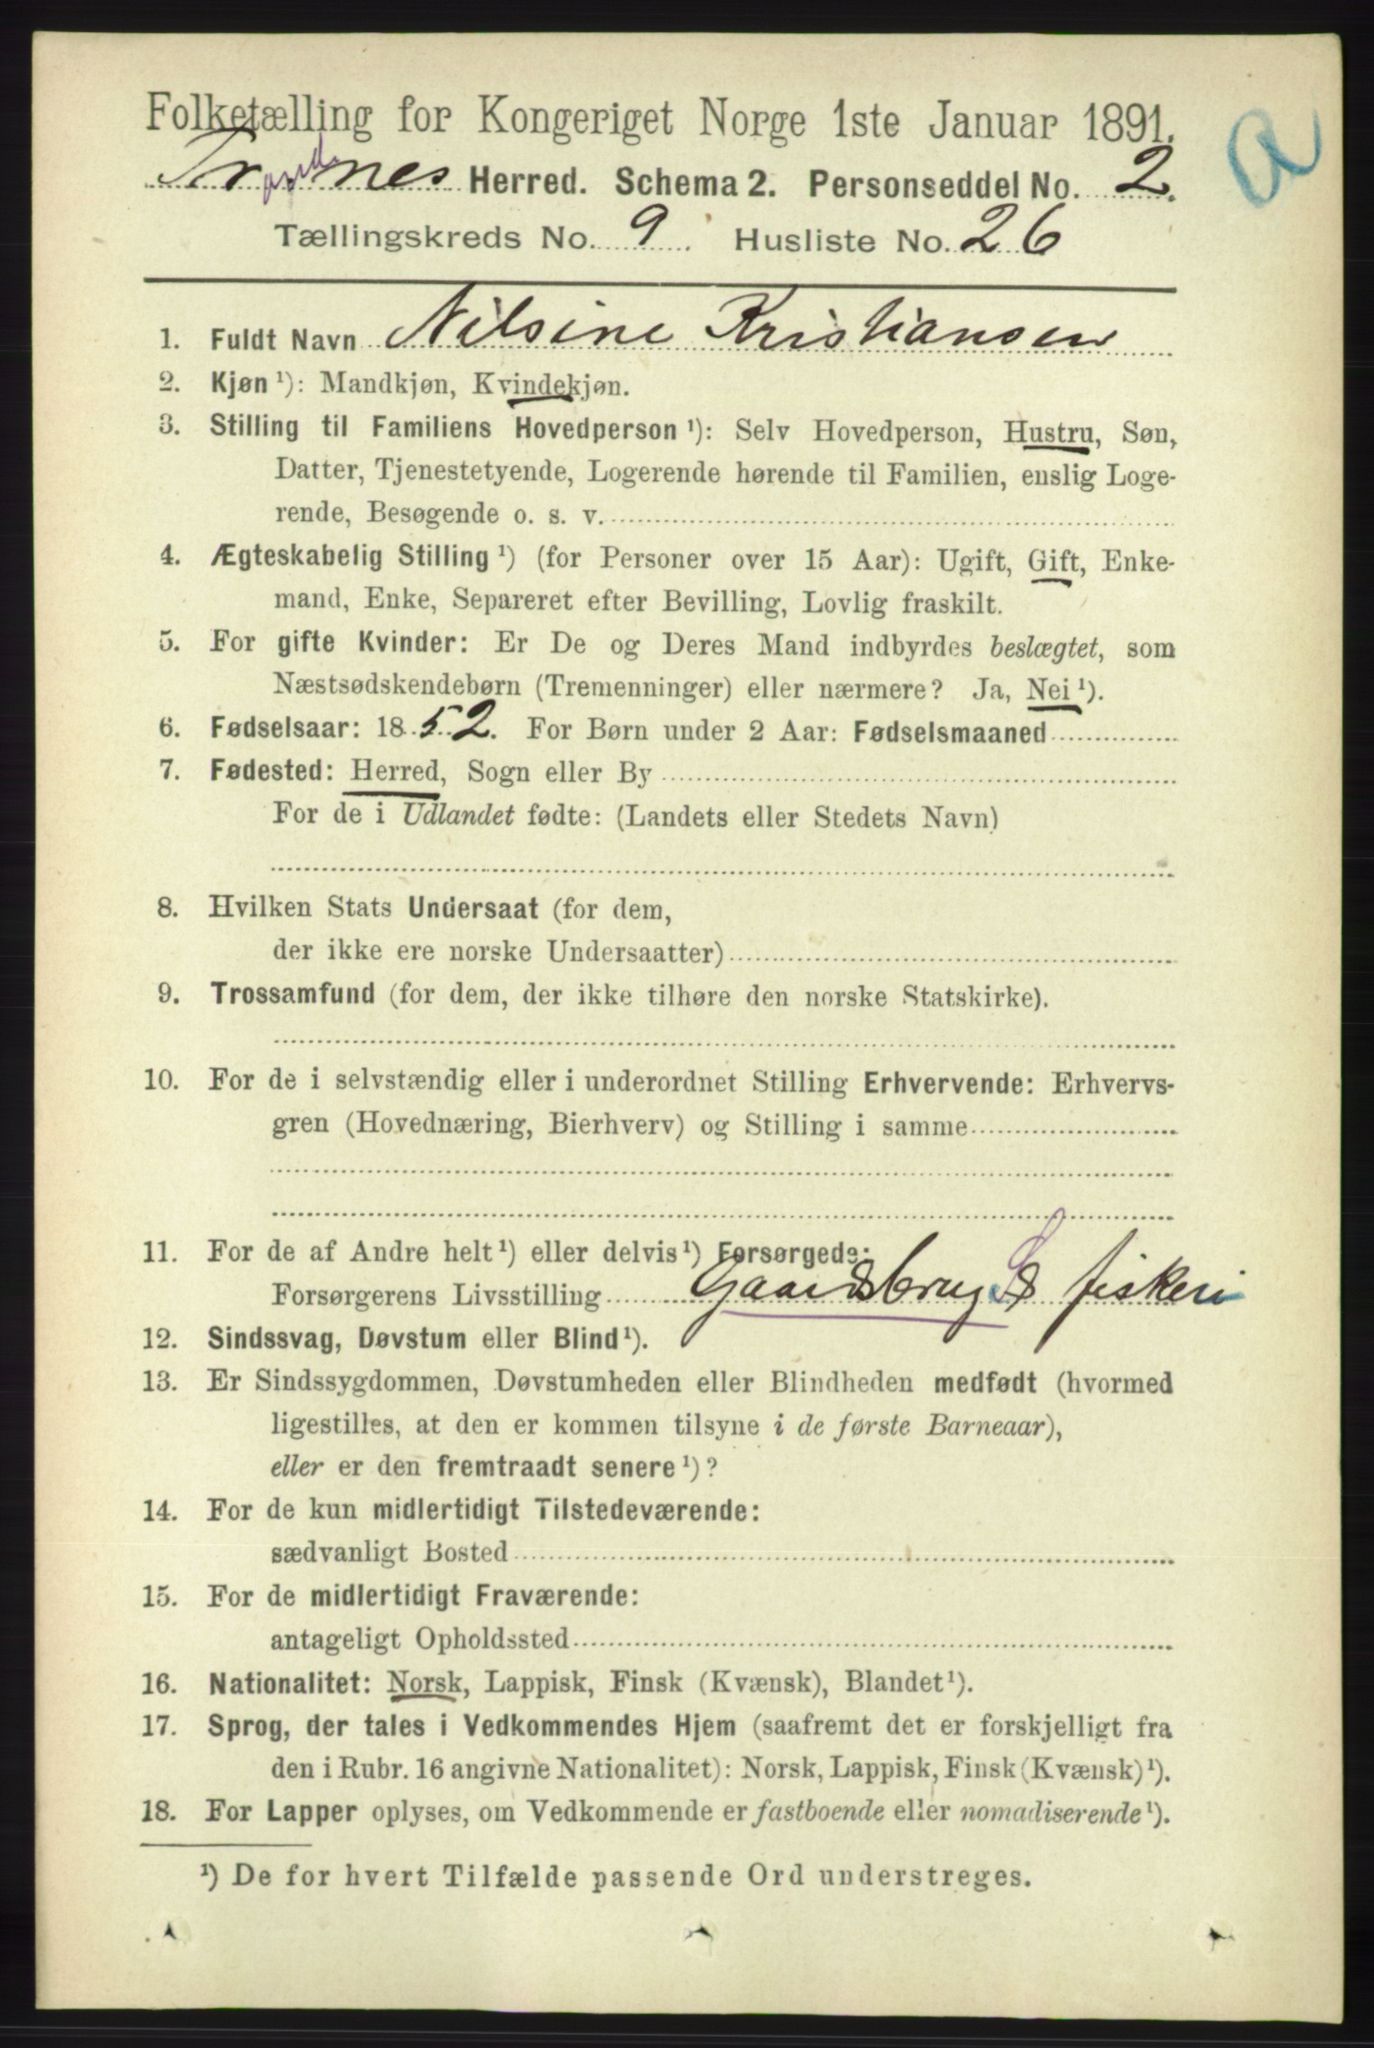 Folketælling for Kongeriget Norge 1ste Januar 1891.
a
Trondenes Herred. Schema 2. Personseddel No. 2.
Tællingskreds No. 9. Husliste No. 26
1. Fuldt Navn Nilsine Kristiansen
2. Kjøn ¹): Mandkjøn, Kvindekjøn.
3. Stilling til Familiens Hovedperson ¹): Selv Hovedperson, Hustru, Søn,
Datter, Tjenestetyende, Logerende hørende til Familien, enslig Loge-
rende, Besøgende o. s. v.
4. Ægteskabelig Stilling ¹) (for Personer over 15 Aar): Ugift, Gift, Enke-
mand, Enke, Separeret efter Bevilling, Lovlig fraskilt.
5. For gifte Kvinder: Er De og Deres Mand indbyrdes beslægtet, som
Næstsødskendebørn (Tremenninger) eller nærmere? Ja, Nei ¹).
6. Fødselsaar: 1852. For Børn under 2 Aar: Fødselsmaaned
7. Fødested: Herred, Sogn eller By
For de i Udlandet fødte: (Landets eller Stedets Navn)
8. Hvilken Stats Undersaat (for dem,
der ikke ere norske Undersaatter)
9. Trossamfund (for dem, der ikke tilhøre den norske Statskirke).
10. For de i selvstændig eller i underordnet Stilling Erhvervende: Erhvervs-
gren (Hovednæring, Bierhverv) og Stilling i samme
11. For de af Andre helt ¹) eller delvis ¹) Forsørgede:
Forsørgerens Livsstilling Gaardsbrug & fiskeri
12. Sindssvag, Døvstum eller Blind ¹).
13. Er Sindssygdommen, Døvstumheden eller Blindheden medfødt (hvormed
ligestilles, at den er kommen tilsyne i de første Barneaar),
eller er den fremtraadt senere ¹)?
14. For de kun midlertidigt Tilstedeværende:
sædvanligt Bosted
15. For de midlertidigt Fraværende:
antageligt Opholdssted
16. Nationalitet: Norsk, Lappisk, Finsk (Kvænsk), Blandet ¹).
17. Sprog, der tales i Vedkommendes Hjem (saafremt det er forskjelligt fra
den i Rubr. 16 angivne Nationalitet): Norsk, Lappisk, Finsk (Kvænsk) ¹).
18. For Lapper oplyses, om Vedkommende er fastboende eller nomadiserende ¹).
¹) De for hvert Tilfælde passende Ord understreges.